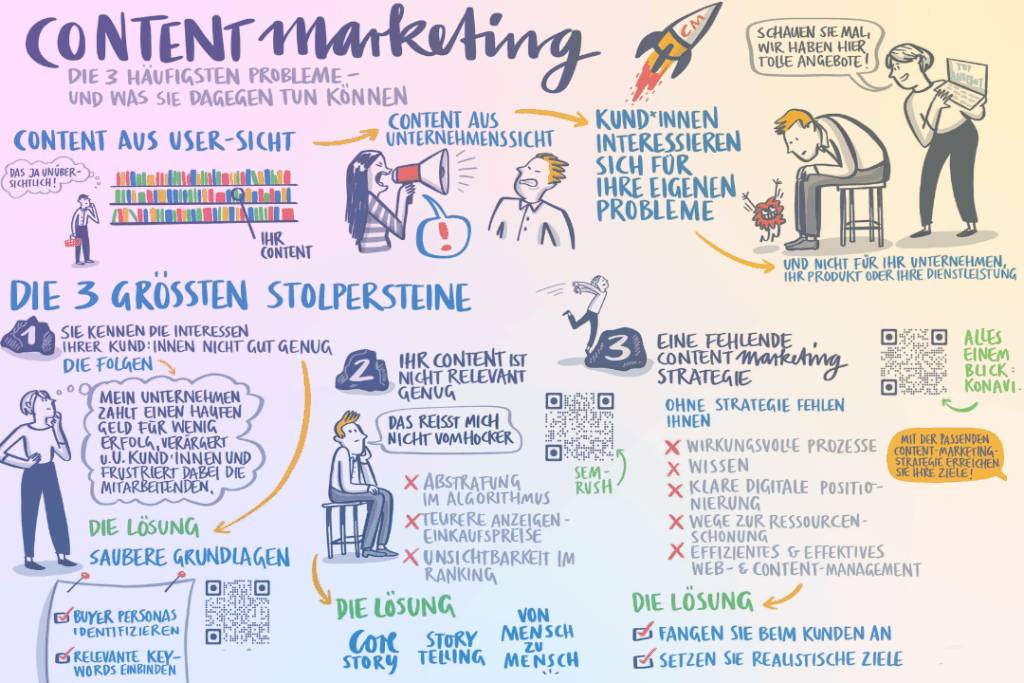 CONTENT marketing
DIE 3 HÄUFIGSTEN PROBLEME –
UND WAS SIE DAGEGEN TUN KÖNNEN
CM
SCHAUEN SIE MAL,
WIR HABEN HIER
TOLLE ANGEBOTE!
TOP
ANGEBOT
CONTENT AUS USER-SICHT
DAS JA UNÜBER-
SICHTLICH!
IHR
CONTENT
CONTENT AUS
UNTERNEHMENSSICHT
!
KUND*INNEN
INTERESSIEREN
SICH FÜR
IHRE EIGENEN
PROBLEME
UND NICHT FÜR IHR UNTERNEHMEN,
IHR PRODUKT ODER IHRE DIENSTLEISTUNG
DIE 3 GRÖSSTEN STOLPERSTEINE
1
SIE KENNEN DIE INTERESSEN
IHRER KUND:INNEN NICHT GUT GENUG
DIE FOLGEN
MEIN UNTERNEHMEN
ZAHLT EINEN HAUFEN
GELD FÜR WENIG
ERFOLG, VERÄRGERT
u.U. KUND*INNEN UND
FRUSTRIERT DABEI DIE
MITARBEITENDEN.
DIE LÖSUNG
SAUBERE GRUNDLAGEN
BUYER PERSONAS
IDENTIFIZIEREN
RELEVANTE KEY-
WORDS EINBINDEN
2
IHR CONTENT IST
NICHT RELEVANT
GENUG
DAS REISST MICH
NICHT VOM HOCKER
SEM-
RUSH
ABSTRAFUNG
IM ALGORITHMUS
TEURERE ANZEIGEN-
EINKAUFSPREISE
UNSICHTBARKEIT IM
RANKING
DIE LÖSUNG
CORE
STORY
STORY
TELLING
VON
MENSCH
ZU
MENSCH
3
EINE FEHLENDE
CONTENT marketing
STRATEGIE
ALLES
EINEM
BLICK:
KONAVI.
OHNE STRATEGIE FEHLEN
IHNEN
WIRKUNGSVOLLE PROZESSE
WISSEN
KLARE DIGITALE POSITIO-
NIERUNG
WEGE ZUR RESSOURCEN-
SCHONUNG
EFFIZIENTES & EFFEKTIVES
WEB- & CONTENT-MANAGEMENT
MIT DER PASSENDEN
CONTENT-MARKETING-
STRATEGIE ERREICHEN
SIE IHRE ZIELE!
DIE LÖSUNG
FANGEN SIE BEIM KUNDEN AN
SETZEN SIE REALISTISCHE ZIELE